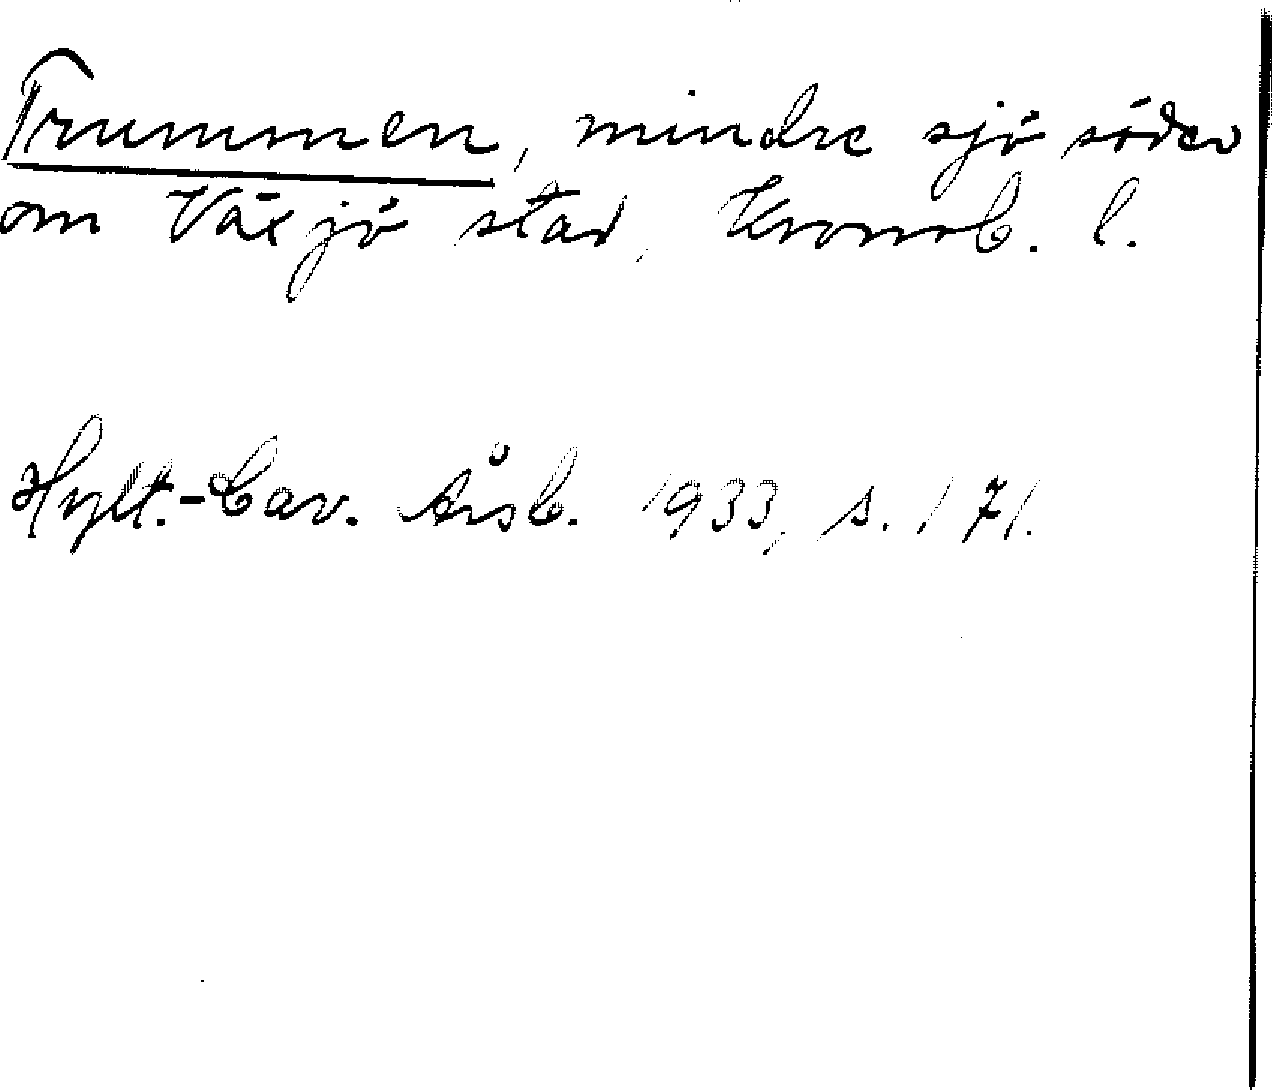 Trummen, mindre sjö söder
om Växjö stad, Kronob. l.
Hylt.-Cav. Årsb. 1933, s. 171.